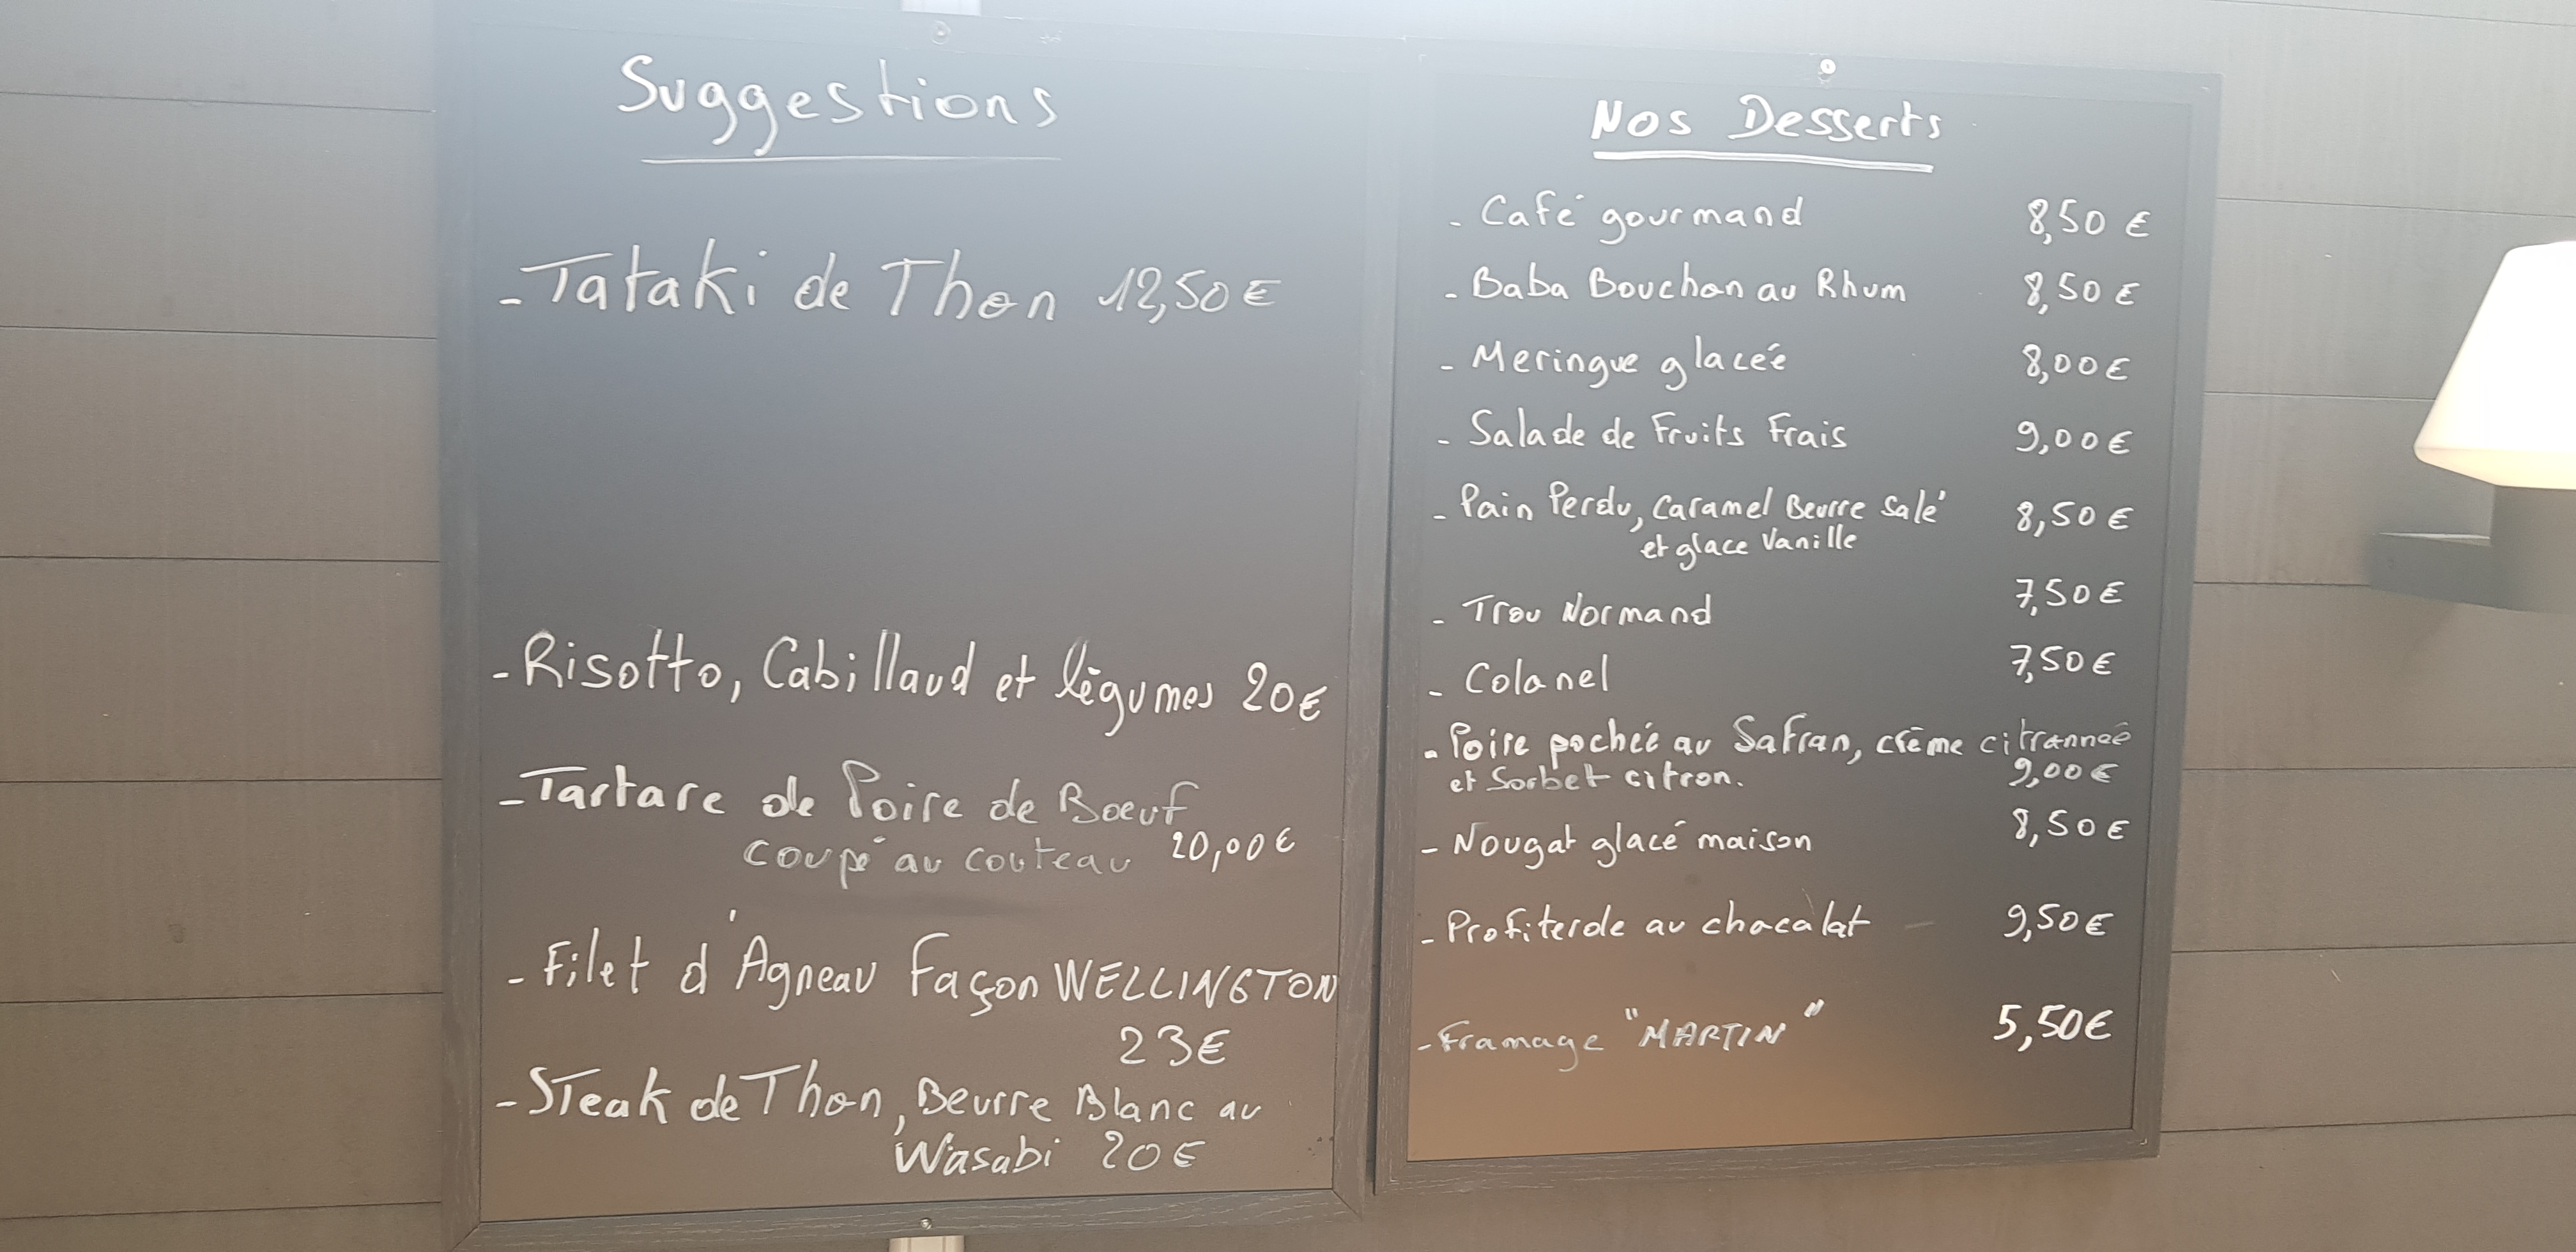 Suggestions
- Tataki de Thon 12,50€
- Risotto, Cabillaud et légumes 20€
- Tartare de Poire de Boeuf
coupé au couteau 20,00€
- Filet d'Agneau Façon WELLINGTON
23€
- Steak de Thon, Beurre Blanc au
Wasabi 20€
Nos Desserts
- Café gourmand 8,50 €
- Baba Bouchon au Rhum 8,50 €
- Meringue glacée 8,00€
- Salade de Fruits Frais 9,00€
- Pain Perdu, Caramel Beurre Salé 8,50€
et glace Vanille
- Trou Normand 7,50€
- Colonel 7,50€
- Poire pochée au Safran, crème citronnée
et Sorbet citron. 9,00€
- Nougat glacé maison 8,50€
- Profiterole au chocolat 9,50€
- Fromage "MARTIN" 5,50€